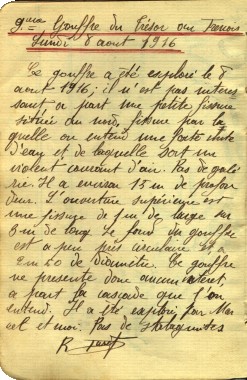 9ème Gouffre du Trésor ou
Lundi 8 aout 1916
Ce gouffre a été exploré le 8
aout 1916; il n'est pas intéres
sant a part une petite fissure
située du nord, fissure par la
quelle on entend une forte chute
d'eau et de laquelle sort un
violent courant d'air. Pas de gale
rie. Il a environ 15 m de profon
deur. L'ouverture supérieure est
une fissure de 1 m de large sur
3 m de long. Le fond du gouffre
est a peu près circulaire et a
2 m 50 de diamètre. Ce gouffre
ne présente donc aucun intéret,
a part la cascade que l'on
entend. Il a été exploré par Mar
cel et moi. Pas de stalagmites
R